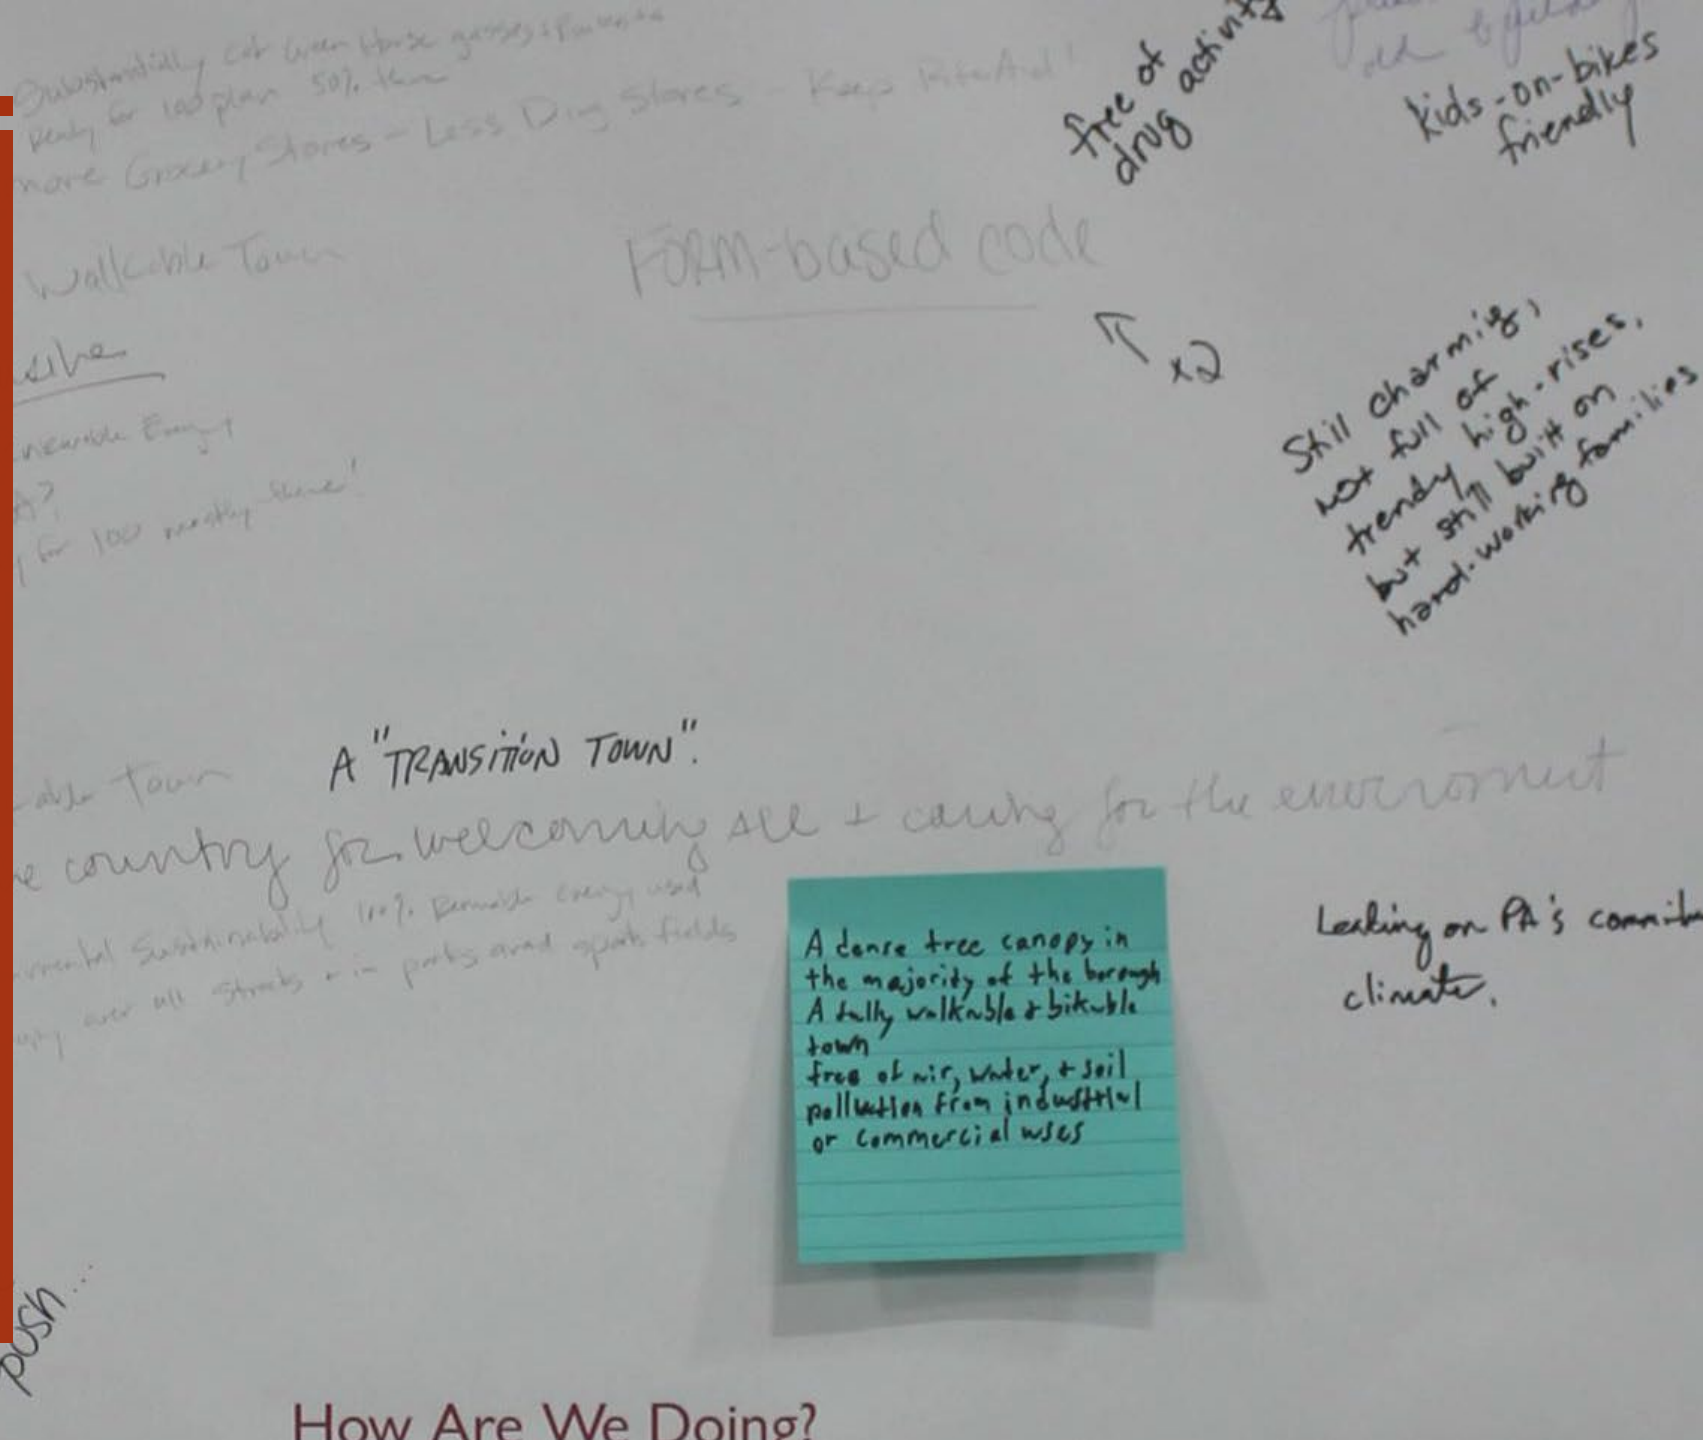 Substantially cut Green House gasses
Ready for 100 plan 50% there
more Grocery Stores - Less Drug Stores - Keep RiteAid!
free of
drug activity
old
kids-on-bikes
friendly
Walkable Town
FORM-based code
x2
Still charmig,
not full of
trendy high-rises,
but still built on
hard-working families
for 100 mostly there!
Town
A "TRANSITION TOWN".
country for welcoming all + caring for the enviroment
Sustainability 100% Renewable Energy used
over all Streets + in parks and sports fields
A dense tree canopy in
the majority of the borough
A fully walkable + bikable
town
free of air, water, + soil
pollution from industrial
or commercial uses
Leaking on PA's
climate.
PUSH...
How Are We Doing?